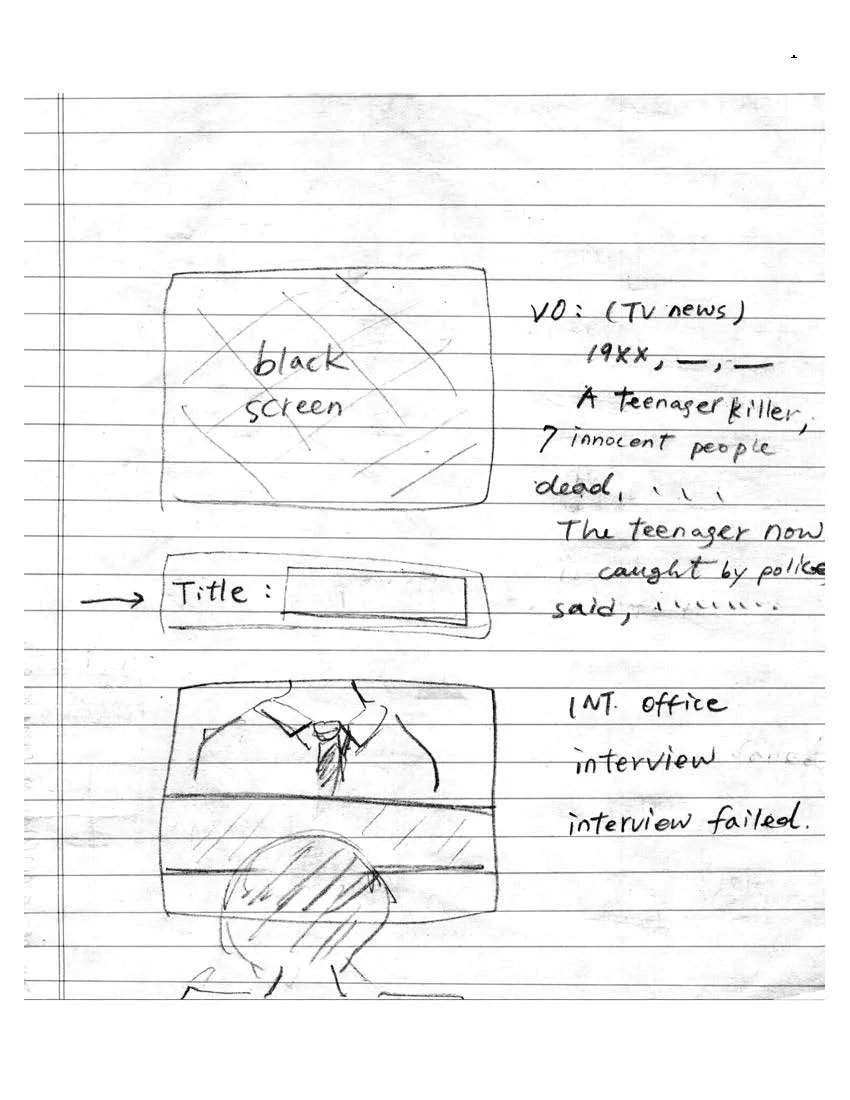 1
black
screen
VO: (TV news)
19XX, __, __
A teenager killer,
7 innocent people
dead, . . .
The teenager now
caught by police
said, ........
Title :
INT. office
interview
interview failed.